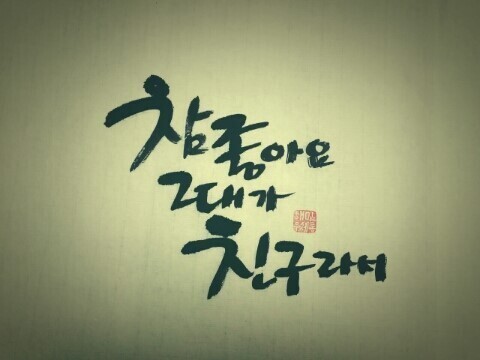 참좋아요
그대가
친구라서